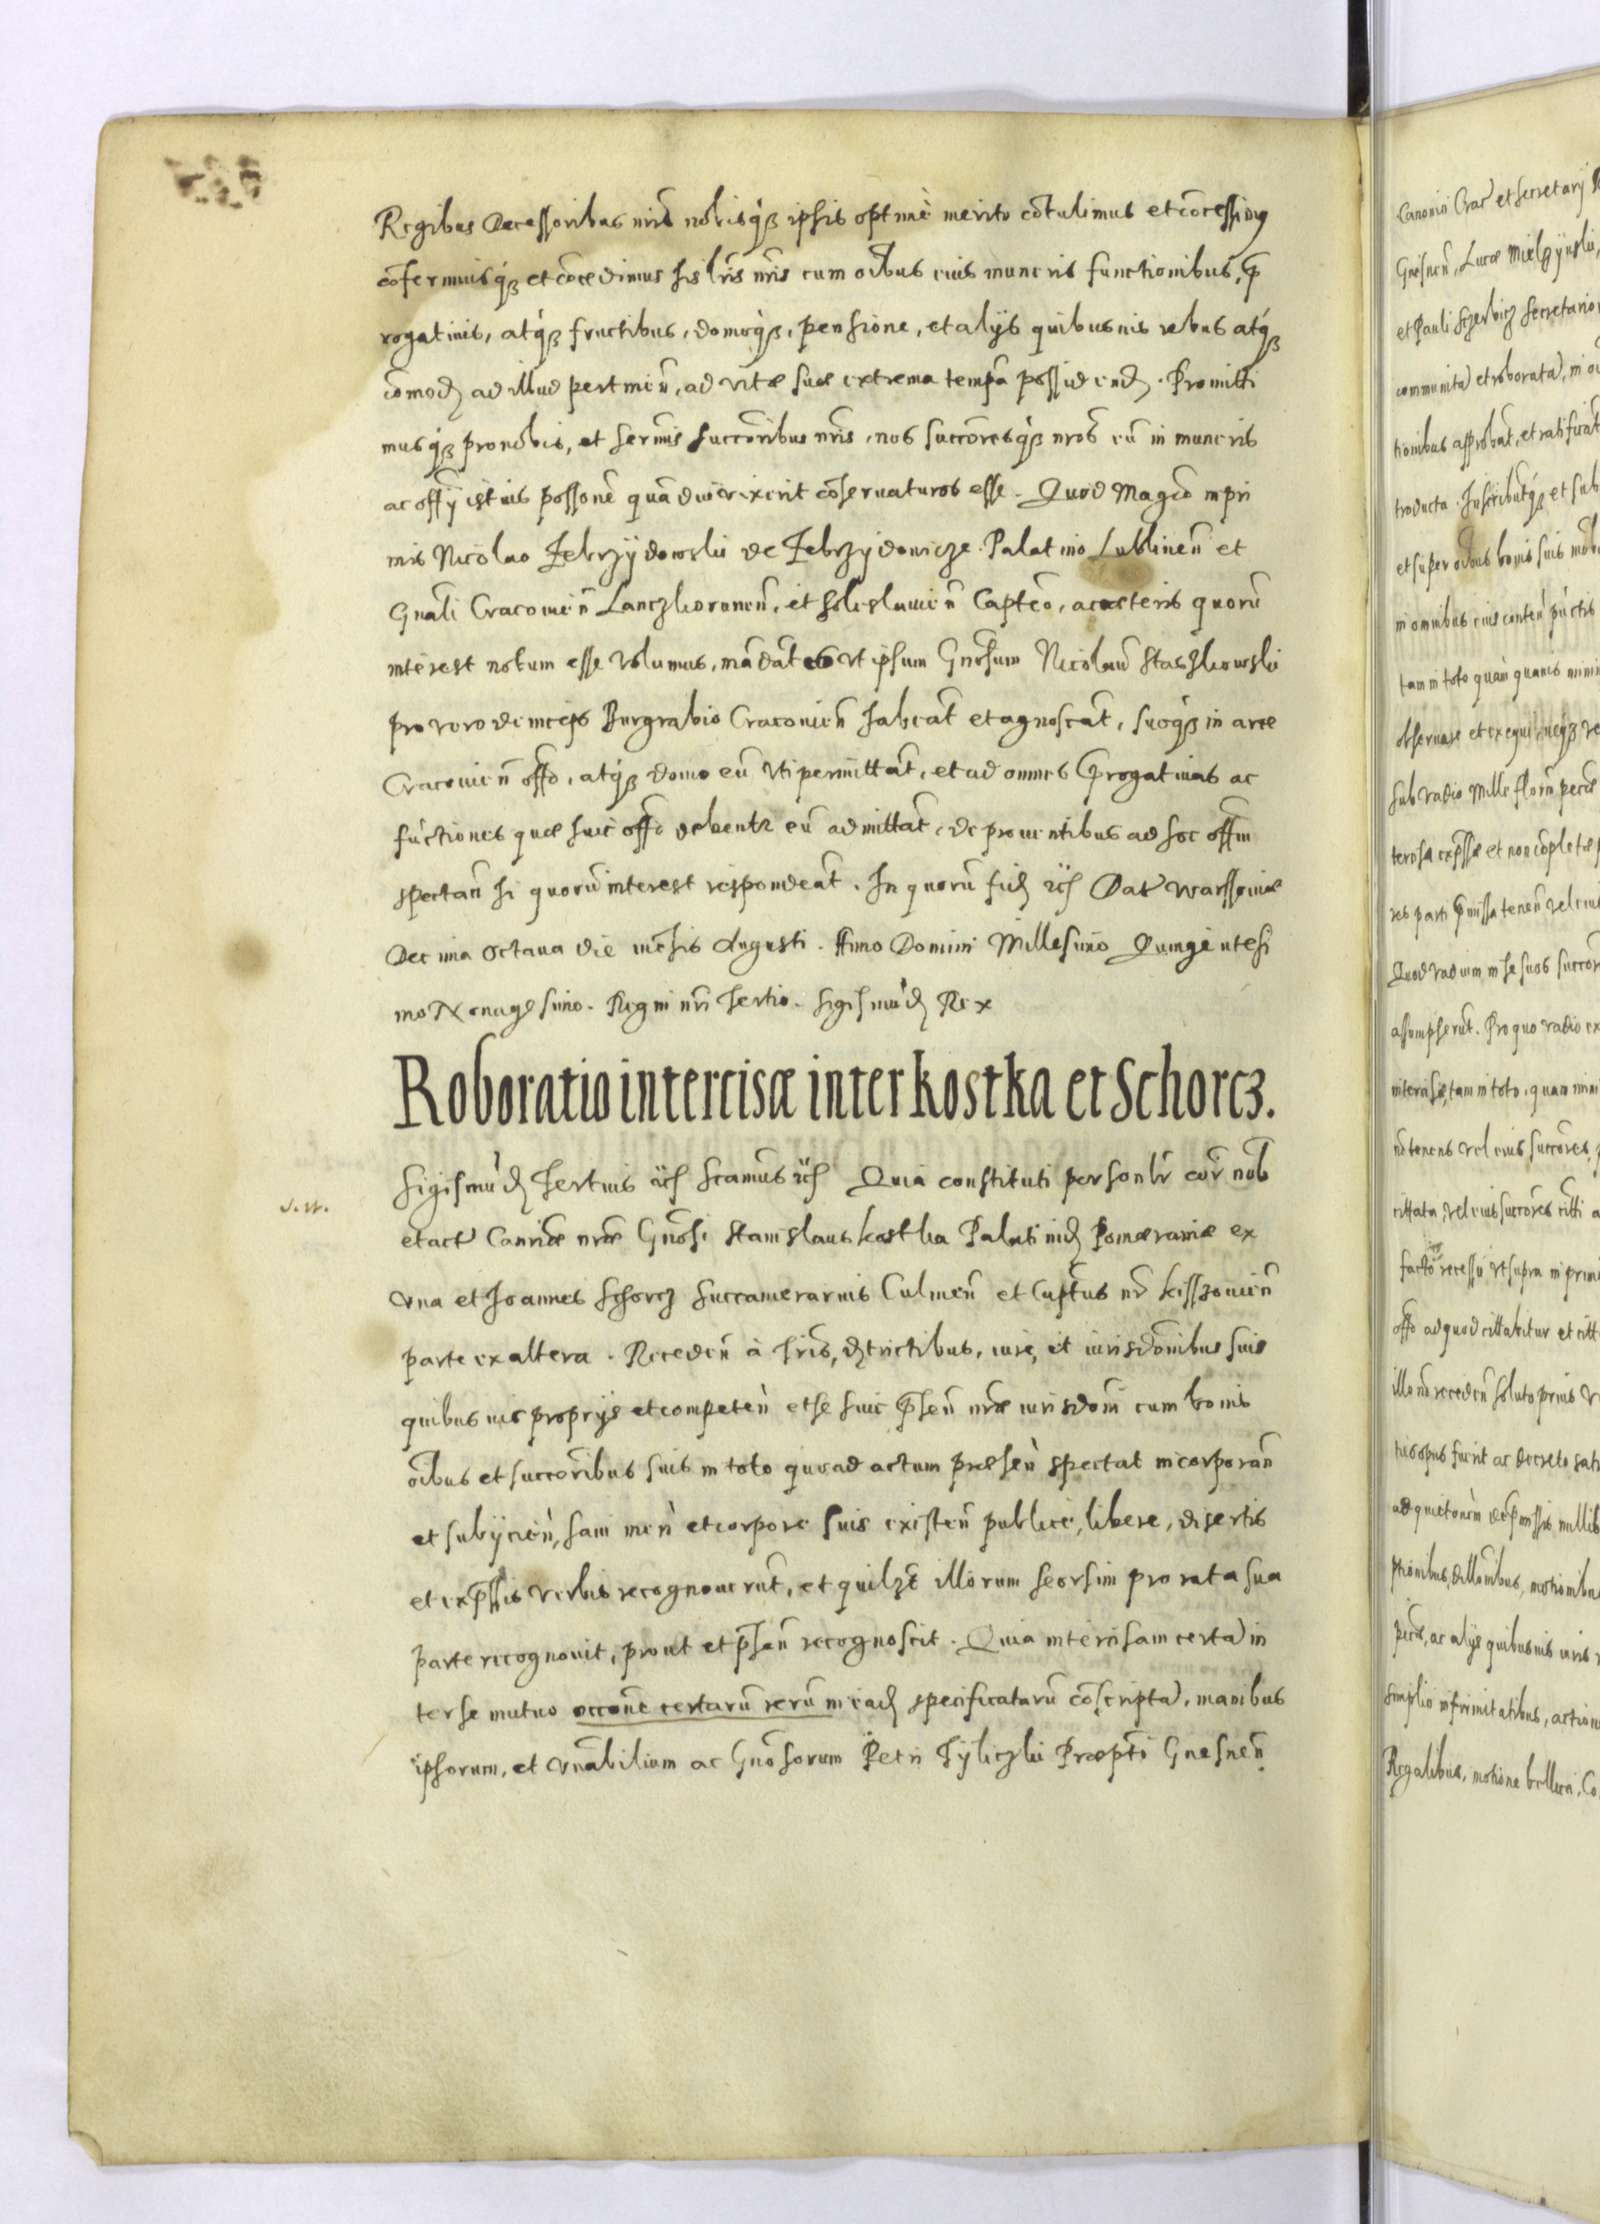 Regibus Decessoribus nr̃is nobisq́ʒ ipsis optimè merito cõtulimus et cõcessimus
cõferimusq́ʒ et cõcedimus his lr̃is nr̃is cum oĩbus eius muneris functionibus, p̃
rogatiuis, atq́ʒ fructibus, domoq́ʒ, pensione, et alijs quibusuis rebus atq́ʒ
cõmodꝫ ad illud pertineñ, ad vitæ suæ extrema temp̃a possidendꝫ. Promitti
musq́ʒ pro nobis, et Serm̃is Succor̃ibus nr̃is, nos succor̃esq́ʒ nr̃os eũ in muneris
ac offĩj istius possõne quãdiu vixerit cõseruaturos esse. Quod Mag̃co inpri
mis Nicolao Zebrzijdowski de Zebrzijdowicze Palatino Lublineñ et
Gnãli Cracouieñ Lanczkoroneñ, et Boleslauieñ Capt̃eo, ac cæteris quorũ
interest notum esse volumus, mãdãtes vt ipsum Gñosum Nicolaũ Staszkowski
pro vero deinceps Burgrabio Cracouieñ habeãt et agnoscãt, suoq́ʒ in arce
Cracouieñ offõ, atq́ʒ domo eũ vti permittãt, et ad omnes p̃rogatiuas ac
fũctiones quæ huic offõ debentr eũ admittãt, de prouentibus ad hoc offm̃
spectañ hi quorũ interest respondeãt. In quorũ fidꝫ ꝛcꝫ Dat Warssouiæ
Decima Octaua die mẽsis Augusti. Anno Domini Millesimo Quingẽtesi
mo Nonagesimo. Regni nr̃i Tertio. Sigismũdꝫ Rex
Roboratio intercisæ inter Kostka et Schorcz.
Sigismũdꝫ Tertius ꝛcꝫ Sc̃amus ꝛcꝫ Quia constituti personlr̃ cor̃ nob̃
et act Canr̃iæ nr̃æ Gñosi Stanislaus Kostka Palatinꝫ Pomæraniæ ex
vna et Joannes Schorcz Succamerarius Culmeñ et Capt̃eus nr̃ Kisszouieñ
parte ex altera. Recedeñ à Tr̃is, dꝫtrictibus, iure, et iurisdõnibus suis
quibusuis proprijs et competeñ et se huic p̃señ nr̃æ iurisdõni cum bonis
oĩbus et succor̃ibus suis in toto quoad actum præseñ spectat incorporañ
et subijcieñ, sani meñ et corpore suis existeñ publicè, libere, disertis
et exp̃ssis verbis recognouerũt, et quilꝫt illorum seorsim pro rata sua
parte recognouit, prout et p̃señ recognoscit. Quia intercisam certã in
ter se mutuo occõne certarũ rerũ in eadꝫ specificatarũ cõscriptã, manibus
ipsorum, et vnãbilium ac Gñosorum Petri Tijliczki Præpt̃i Gnesneñ
Canonici Crac̃ et Secretarij
Gnesneñ, Lucæ Mielzÿnski,
et Pauli Sczerbicz Secretario
communitã et roboratã, in o
tionibus approbãt, et ratificãt
troducta. Inscribũtq́ʒ et sub
et super oĩbus bonis suis mob
in omnibus eius conteñ pũctis
tam in toto quàm quauis mini
obseruare et exequi, neq́ʒ re
sub vadio Mille florẽn pecũ
tercisæ exp̃ssæ et non cõpletæ
res parti p̃missa teneñ vel eiu
Quod vadium in se suos succor
assumpserũt. Pro quo vadio ex
intercisæ, tam in toto, quam mini
nõ tenens vel eius succores,
cittata, vel eius succores citti a
facto recessu vt supra in prim
offõ ad quod cittabitur et citt
illo nõ recedeñ soluto prius v
ad quietoñem de p̃missis nullib
simplici infirmitatibus, action
Regalibus, motione bellica, Co